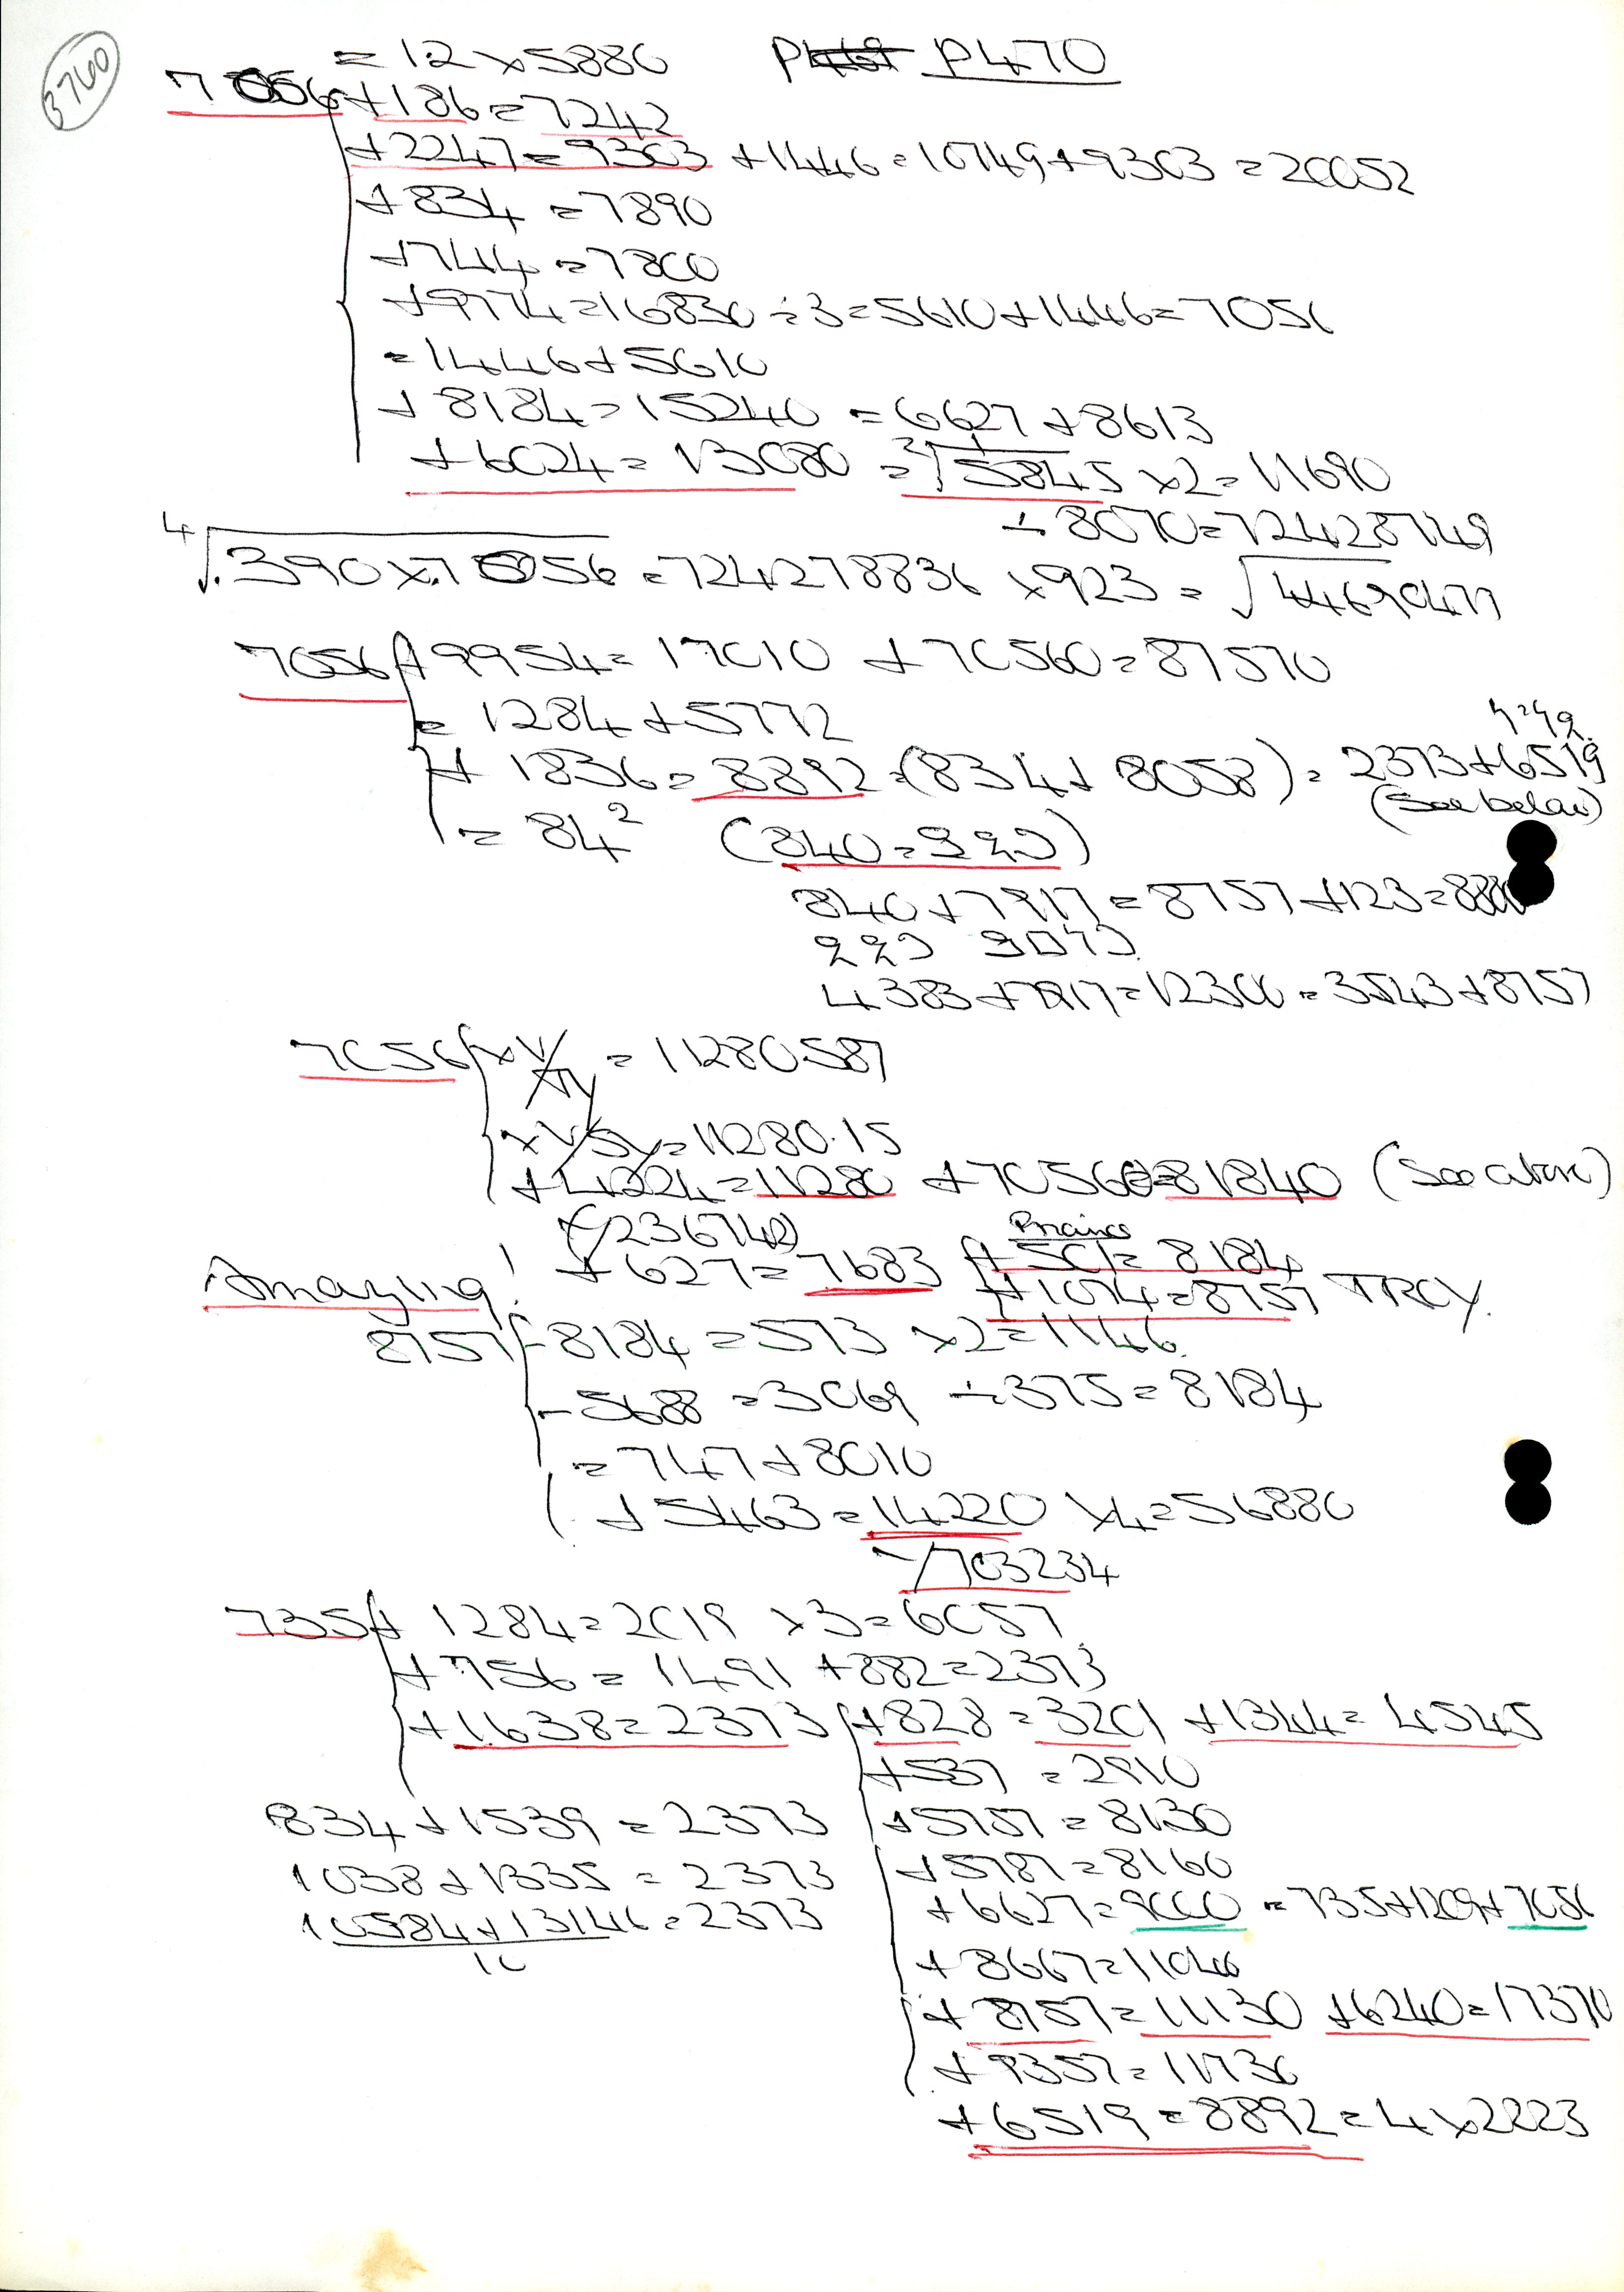 3760
= 12 x 5880 P470
7056 + 186 = 7242
+ 2247 = 9303 + 1446 = 10749 + 9303 = 20052
+ 834 = 7890
+ 744 = 7800
+ 9774 = 16830 ÷ 3 = 5610 + 1446 = 7056
= 1446 + 5610
+ 8184 = 15240 = 6627 + 8613
+ 6024 = 13080 = ³√5845 x 2 = 11690
÷ 8070 = 72428749
⁴√.390 x 7056 = 724278836 x 923 = √44690477
7056 + 9954 = 17010 + 70560 = 87570
= 1284 + 5772
+ 1836 = 8892 = (834 + 8058) = 2373 + 6519
(See below)
= 84² (840 =
840 + 7917 = 8757 + 123 = 8880
4383 + 7917 = 12300 = 3543 + 8757
7056 = 11280587
= 11280.15
+ 4224 = 11280 + 70560 = 81840 (See above)
(√236742)
Amazing! + 627 = 7683 + 501 = 8184
+ 1074 = 8757 TROY.
8757 - 8184 = 573 x 2 = 1146
- 5688 = 3069 ÷ 375 = 8184
= 747 + 8010
+ 5463 = 14220 x 4 = 56880
√703234
735 + 1284 = 2019 x 3 = 6057
+ 756 = 1491 + 882 = 2373
+ 1638 = 2373 + 828 = 3201 + 1344 = 4545
+ 537 = 2910
834 + 1539 = 2373 + 5757 = 8130
1038 + 1335 = 2373 + 5787 = 8160
10584 + 13146 = 2373 + 6627 = 9000 = 735 + 1209 + 7056
10
+ 8667 = 11040
+ 8757 = 11130 + 6240 = 17370
+ 9357 = 11730
+ 6519 = 8892 = 4 x 2223